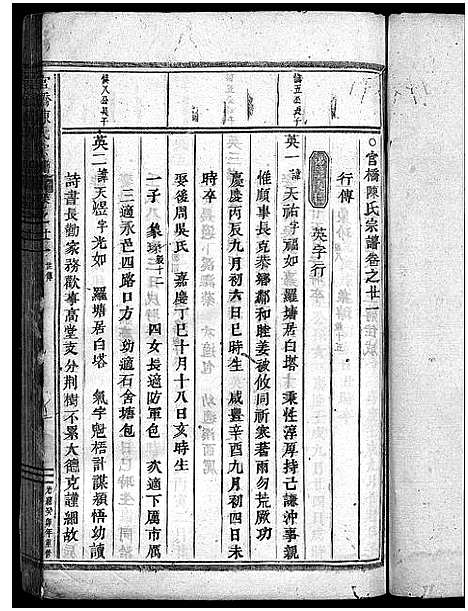 官橋陳氏宗譜卷之廿一
行傳
英字行
諱五公長子
英一諱天祐字福如 羅塘居白塔士秉性淳厚持己謙沖事親
惟順事長克恭鄉鄰和睦姜被攸同祈寒暑雨勿荒厥功
慶慶丙辰九月初六日巳時生 咸豐辛酉九月初四日未
時卒
娶後周吳氏 嘉慶丁巳十月十八日亥時生
一子 象琭 四女長適防軍包 次適下厲市厲
三適永邑四路口方幼適石舍塘包
英二諱天煜字光如 羅塘居白塔 氣宇魁梧計謀頴悟幼讀
詩書長勤家務歡事高堂爻分荆樹不累大德克謹細故
光緒癸卯年重修